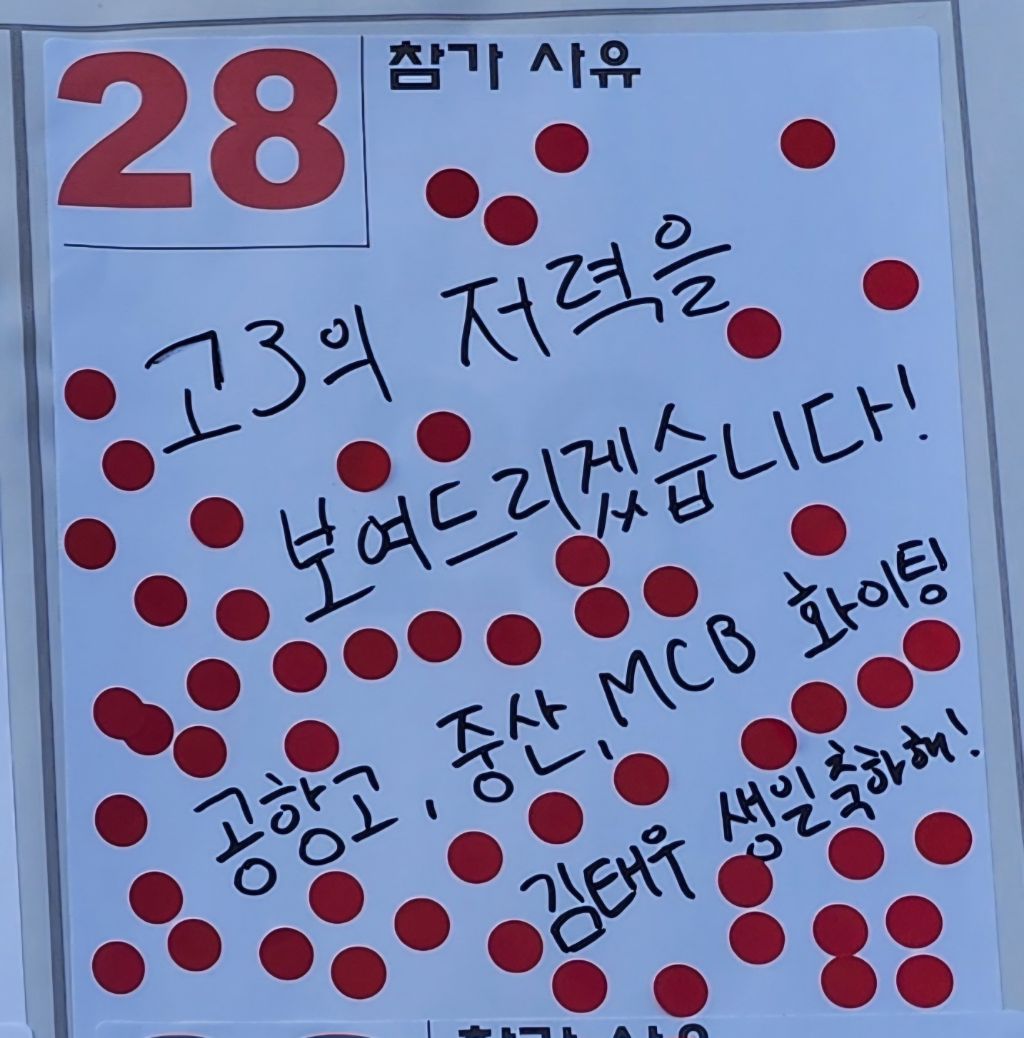 28
참가 사유
고3의 저력을
보여드리겠습니다!
공항고, 중산, MCB 화이팅
김태우 생일축하해!
참가 사유